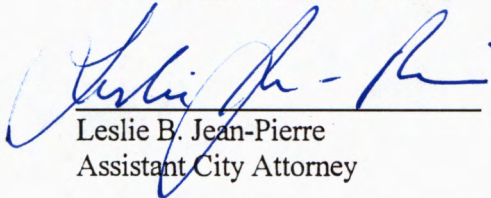 Leslie B. Jean-Pierre
Assistant City Attorney